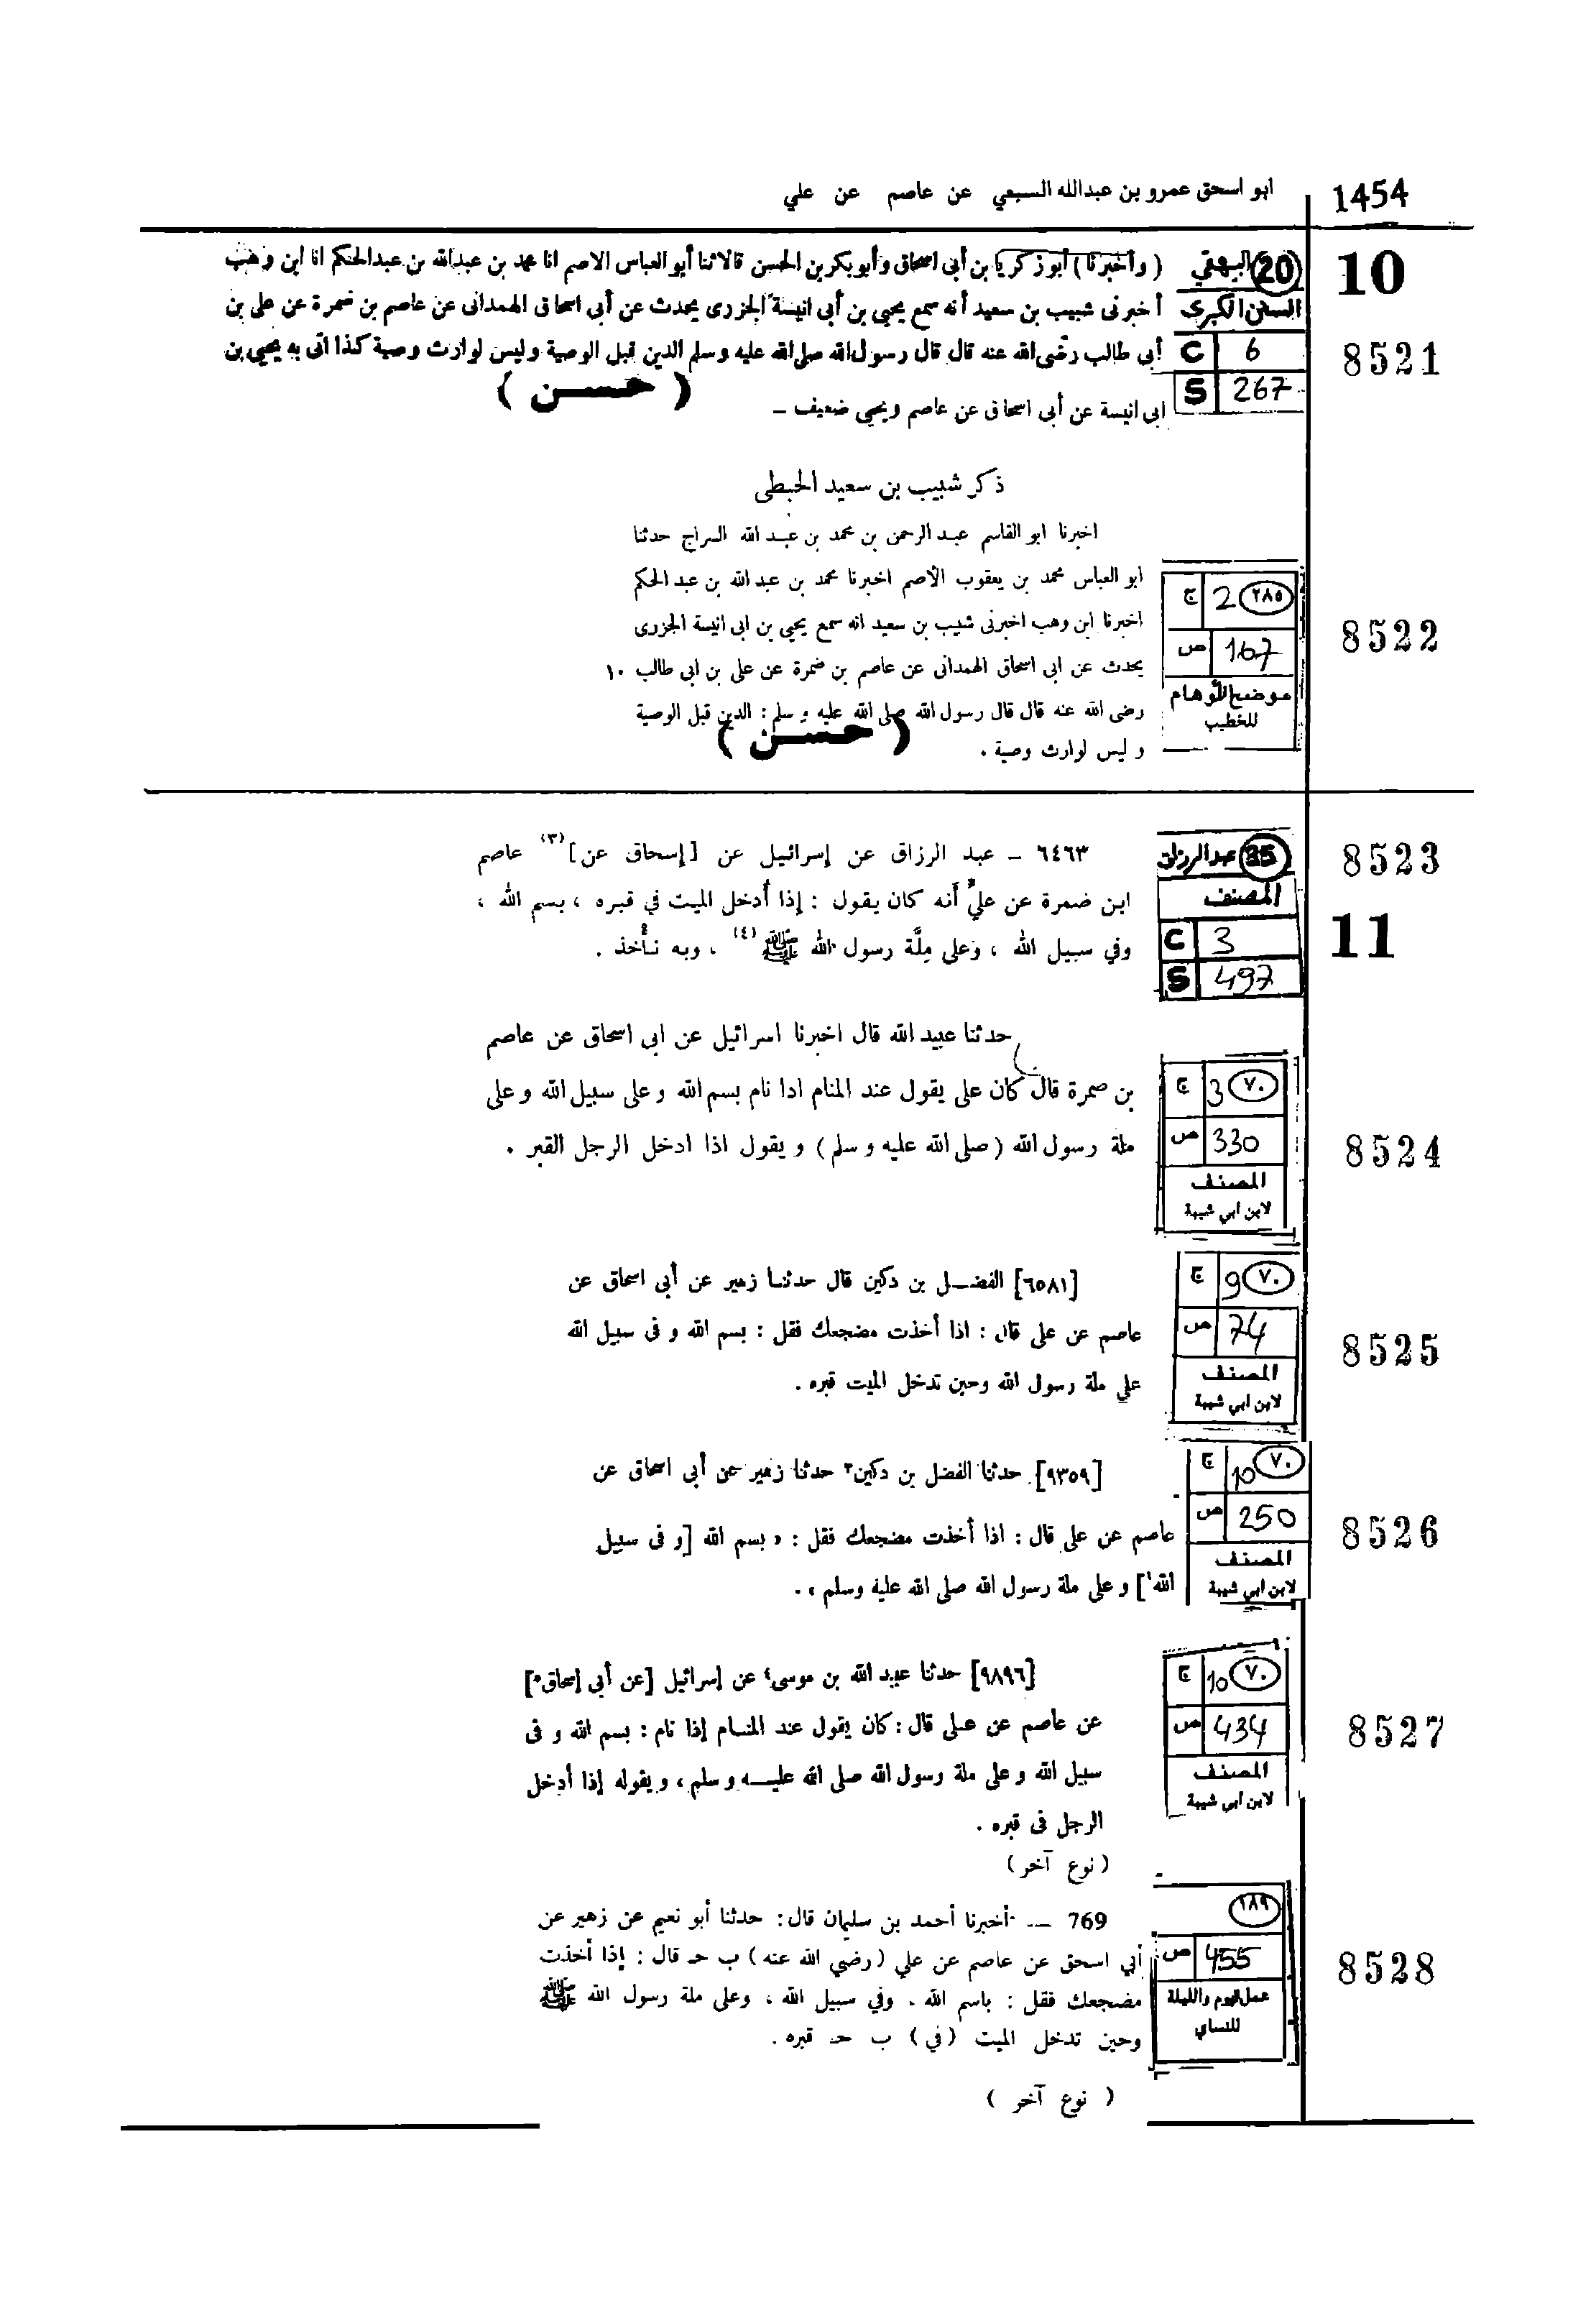 1454
ابو اسحق عمرو بن عبدالله السبعي عن عاصم عن علي
10
8521
20 البيهقي
السنن الكبرى
C 6
S 267
( وأخبرنا ) أبو زكريا بن أبى اسحاق وأبو بكر بن الحسن قالا ثنا أبو العباس الاصم انا محمد بن عبدالله بن عبدالحكم انا ابن وهب
أخبرنى شبيب بن سعيد أنه سمع يحيى بن أبى انيسة الجزرى يحدث عن أبى اسحاق الهمدانى عن عاصم بن ضمرة عن على بن
أبى طالب رضى الله عنه قال قال رسول الله صلى الله عليه وسلم الدين قبل الوصية وليس لوارث وصية كذا اتى به يحيى بن
ابى انيسة عن أبى اسحاق عن عاصم ويحيى ضعيف –
( حسن )
ذكر شبيب بن سعيد الحبطى
8522
٢٨٥ 2 ج
167 ص
موضح الأوهام
للخطيب
اخبرنا ابو القاسم عبد الرحمن بن محمد بن عبد الله السراج حدثنا
ابو العباس محمد بن يعقوب الأصم اخبرنا محمد بن عبد الله بن عبد الحكم
اخبرنا ابن وهب اخبرنى شبيب بن سعيد انه سمع يحيى بن ابى انيسة الجزرى
يحدث عن ابى اسحاق الهمدانى عن عاصم بن ضمرة عن على بن ابى طالب ١٠
رضى الله عنه قال قال رسول الله صلى الله عليه و سلم : الدين قبل الوصية
و ليس لوارث وصية .
( حسن )
8523
11
35 عبدالرزاق
المصنف
C 3
S 497
٦٤٦٣ – عبد الرزاق عن إسرائيل عن [إسحاق عن](٣) عاصم
ابن ضمرة عن علي أنه كان يقول : إذا أُدخل الميت في قبره ، بسم الله ،
وفي سبيل الله ، وعلى مِلَّة رسول الله ﷺ (٤) ، وبه نأخذ .
8524
٧٠ 3 ج
330 ص
المصنف
لابن أبي شيبة
حدثنا عبيد الله قال اخبرنا اسرائيل عن ابى اسحاق عن عاصم
بن صمرة قال كان على يقول عند المنام اذا نام بسم الله وعلى سبيل الله وعلى
ملة رسول الله ( صلى الله عليه و سلم ) و يقول اذا ادخل الرجل القبر .
8525
٧٠ 9 ج
74 ص
المصنف
لابن أبي شيبة
[٦٥٨١] الفضل بن دكين قال حدثنا زهير عن أبى اسحاق عن
عاصم عن على قال : اذا أخذت مضجعك فقل : بسم الله و فى سبيل الله
على ملة رسول الله وحين تدخل الميت قبره .
8526
٧٠ 10 ج
250 ص
المصنف
لابن أبي شيبة
[٩٣٥٩] حدثنا الفضل بن دكين٣ حدثنا زهير عن أبى اسحاق عن
عاصم عن على قال : اذا أخذت مضجعك فقل : « بسم الله [و فى سبيل
الله] و على ملة رسول الله صلى الله عليه وسلم » .
8527
٧٠ 10 ج
434 ص
المصنف
لابن أبي شيبة
[٩٨٩٦] حدثنا عبيد الله بن موسى٤ عن إسرائيل [عن أبى إسحاق٥]
عن عاصم عن على قال : كان يقول عند المنام إذا نام : بسم الله و فى
سبيل الله و على ملة رسول الله صلى الله عليه وسلم ، و يقوله إذا أدخل
الرجل فى قبره .
( نوع آخر )
8528
١٨٩
455 ص
عمل اليوم والليلة
للنساي
769 — أخبرنا أحمد بن سليمان قال : حدثنا أبو نعيم عن زهير عن
أبي اسحق عن عاصم عن علي ( رضي الله عنه ) ب حـ قال : إذا أخذت
مضجعك فقل : باسم الله . وفي سبيل الله ، وعلى ملة رسول الله ﷺ
وحين تدخل الميت ( في ) ب حـ قبره .
( نوع آخر )